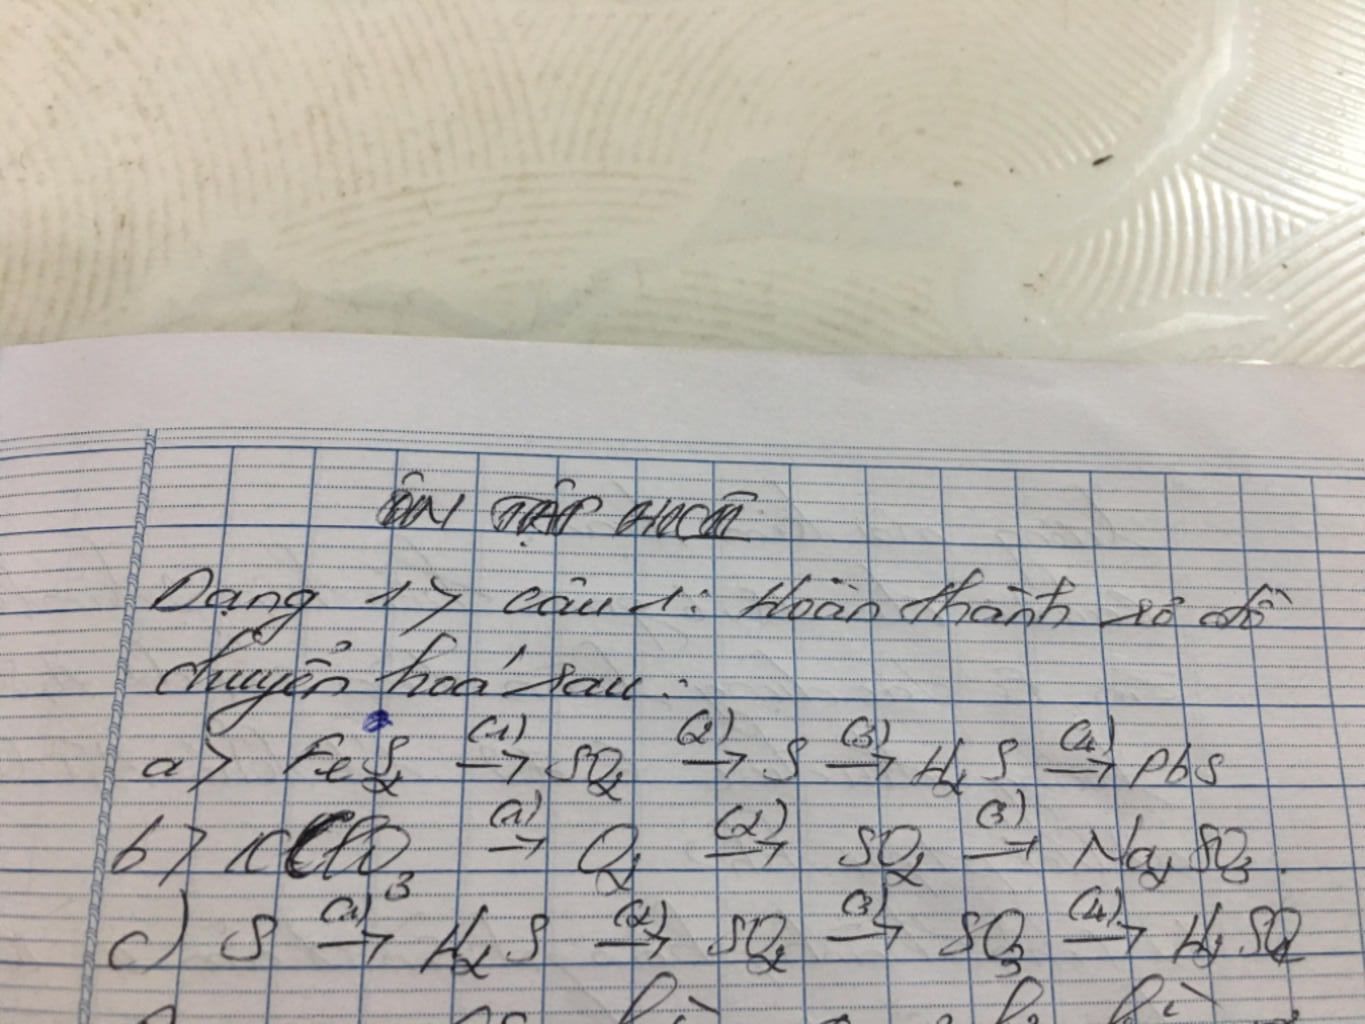 ÔN TẬP HKII
Dạng 1> Câu 1: Hoàn thành sơ đồ
chuyển hoá sau:
a> FeS₂ (1)→ SO₂ (2)→ S (3)→ H₂S (4)→ PbS
b> KClO₃ (1)→ O₂ (2)→ SO₂ (3)→ Na₂SO₃.
c) S (1)→ H₂S (2)→ SO₂ (3)→ SO₃ (4)→ H₂SO₄